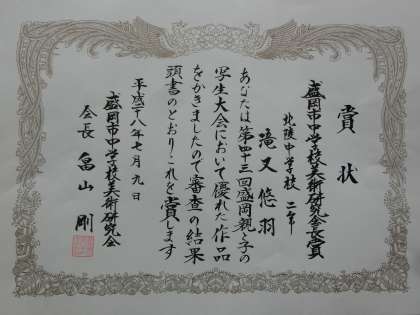 賞状
盛岡市中学校美術研究会長賞
北陵中学校 二年
滝又悠羽
あなたは第四十三回盛岡親と子の
写生大会において優れた作品
をかきましたので審査の結果
頭書のとおりこれを賞します
平成十八年七月九日
盛岡市中学校美術研究会
会長 畠山 剛